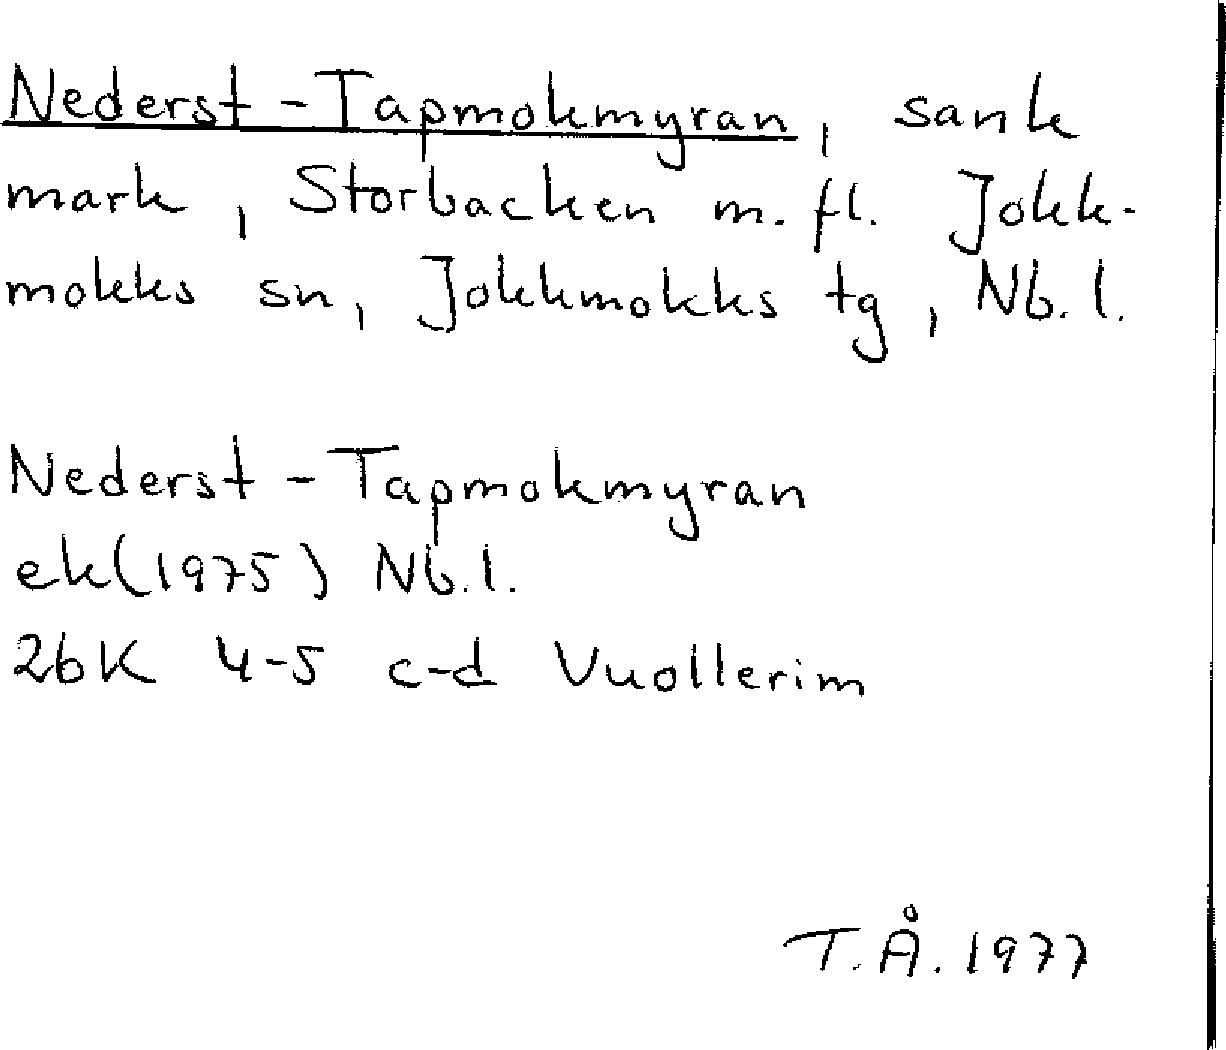 Nederst-Tapmokmyran, sank
mark, Storbacken m.fl. Jokk-
mokks sn, Jokkmokks tg, Nb.l.
Nederst-Tapmokmyran
ek(1975) Nb.l.
26K 4-5 c-d Vuollerim
T.Å. 1977